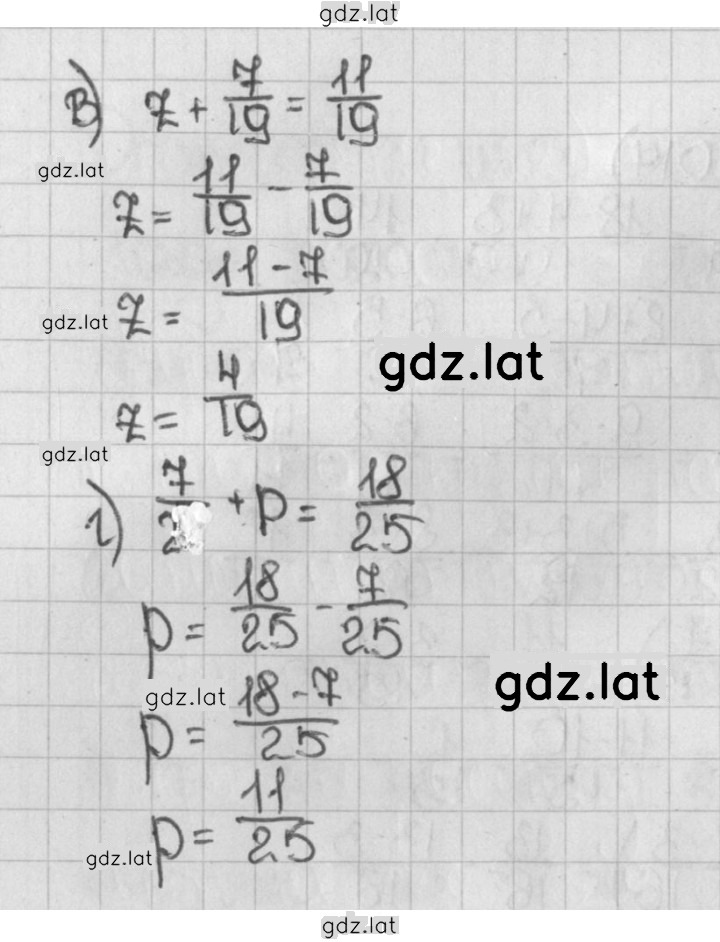 gdz.lat
в) z + 7/19 = 11/19
gdz.lat
z = 11/19 - 7/19
gdz.lat z = (11 - 7)/19
gdz.lat
z = 4/19
gdz.lat
г) 7/2 + p = 18/25
p = 18/25 - 7/25
gdz.lat
gdz.lat
p = (18 - 7)/25
p = 11/25
gdz.lat
gdz.lat